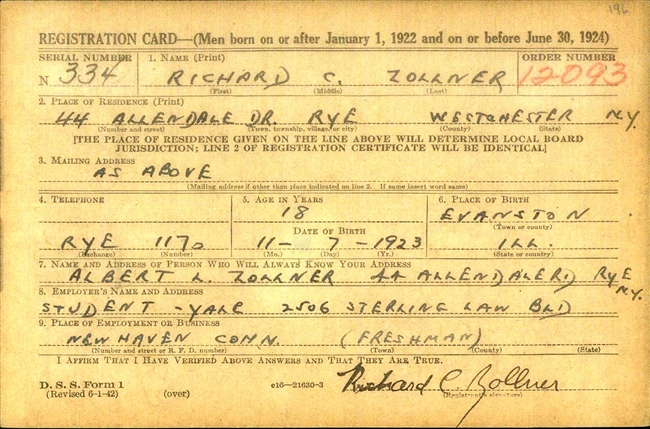 196
REGISTRATION CARD—(Men born on or after January 1, 1922 and on or before June 30, 1924)
SERIAL NUMBER 1. NAME (Print) ORDER NUMBER
N 334 RICHARD C. ZOLLNER 12093
(First) (Middle) (Last)
2. PLACE OF RESIDENCE (Print)
44 ALLENDALE DR. RYE WESTCHESTER N.Y.
(Number and street) (Town, township, village, or city) (County) (State)
[THE PLACE OF RESIDENCE GIVEN ON THE LINE ABOVE WILL DETERMINE LOCAL BOARD
JURISDICTION; LINE 2 OF REGISTRATION CERTIFICATE WILL BE IDENTICAL]
3. MAILING ADDRESS
AS ABOVE
(Mailing address if other than place indicated on line 2. If same insert word same)
4. TELEPHONE 5. AGE IN YEARS 6. PLACE OF BIRTH
18 EVANSTON
(Town or county)
DATE OF BIRTH
RYE 1170 11- 7-1923 ILL.
(Exchange) (Number) (Mo.) (Day) (Yr.) (State or country)
7. NAME AND ADDRESS OF PERSON WHO WILL ALWAYS KNOW YOUR ADDRESS
ALBERT L. ZOLLNER 44 ALLENDALE RD RYE
N.Y.
8. EMPLOYER'S NAME AND ADDRESS
STUDENT - YALE 2506 STERLING LAW BLD
9. PLACE OF EMPLOYMENT OR BUSINESS
NEW HAVEN CONN. (FRESHMAN)
(Number and street or R. F. D. number) (Town) (County) (State)
I AFFIRM THAT I HAVE VERIFIED ABOVE ANSWERS AND THAT THEY ARE TRUE.
D. S. S. Form 1 e16—21630-3 Richard C. Zollner
(Revised 6-1-42) (over) (Registrant's signature)